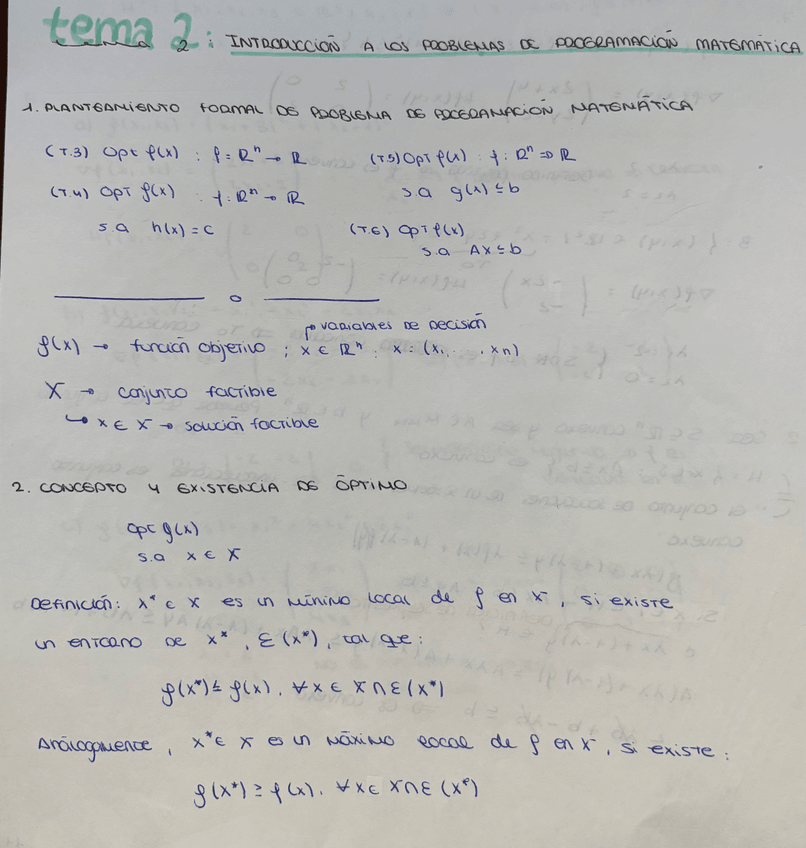 tema 2: INTRODUCCIÓN A LOS PROBLEMAS DE PROGRAMACIÓN MATEMÁTICA
1. PLANTEAMIENTO FORMAL DE PROBLEMA DE PROGRAMACIÓN MATEMÁTICA
(T.3) Opt f(x) : f = ℝⁿ → ℝ (T.5) OPT f(x) : f: ℝⁿ ⇒ ℝ
(T.4) OPT f(x) : f: ℝⁿ → ℝ s.a g(x) ≤ b
s.a h(x) = c (T.6) OPT f(x)
s.a Ax ≤ b
o
variables de decisión
f(x) → función objetivo ; x ∈ ℝⁿ : x = (x₁, ... , xn)
X → conjunto factible
↳ x ∈ X → solución factible
2. CONCEPTO Y EXISTENCIA DE ÓPTIMO
opt f(x)
s.a x ∈ X
Definición: x* ∈ X es un mínimo local de f en X, si existe
un entorno de x*, Ɛ(x*), tal que:
f(x*) ≤ f(x), ∀x ∈ X ∩ Ɛ(x*)
Análogamente, x* ∈ X es un máximo local de f en X, si existe:
f(x*) ≥ f(x), ∀x ∈ X ∩ Ɛ(x*)